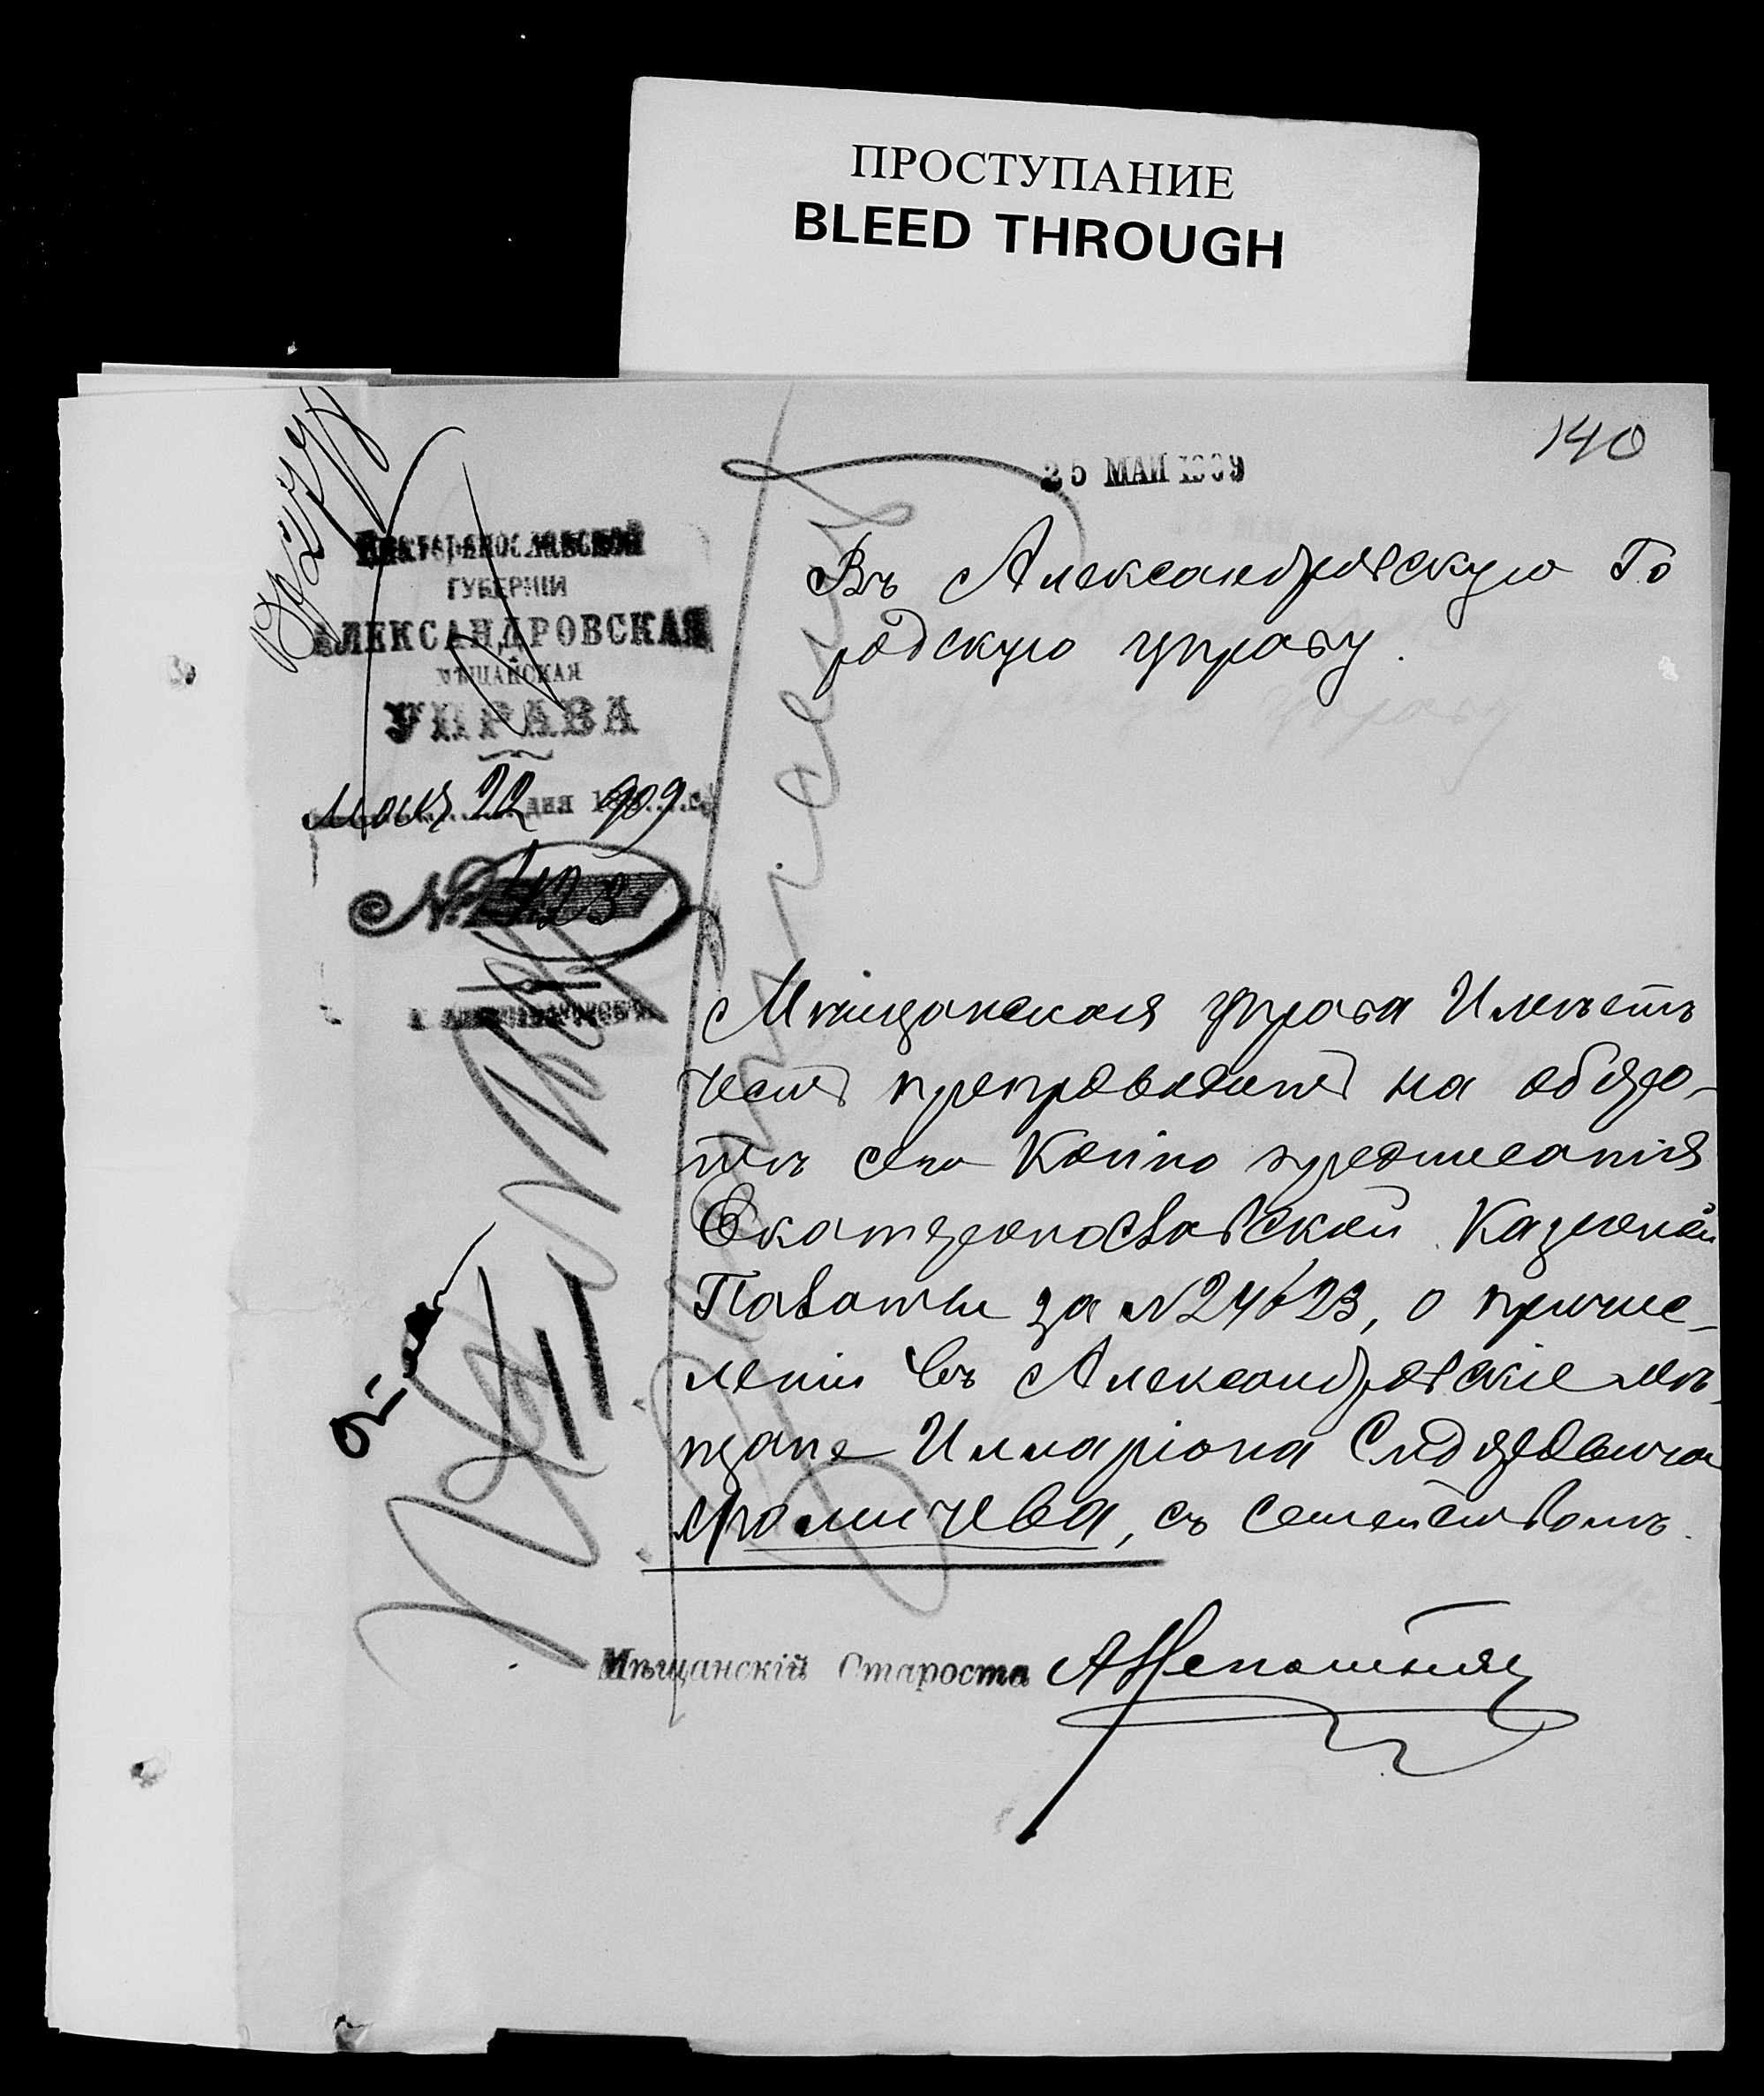 ПРОСТУПАНИЕ
BLEED THROUGH
140
25 МАЙ 1909
Екатеринославской
ГУБЕРНІИ
АЛЕКСАНДРОВСКАЯ
МѢЩАНСКАЯ
УПРАВА
Мая 22 дня 1909 г.
№ 423
Въ Александровскую Го
родскую управу.
Мѣщанская управа Имѣетъ
честь препроводить на оборо-
тѣ сего Копію предписанія
Екатеринославской Казенной
Палаты за №24623, о причис-
леніи въ Александровскіе мѣ-
щане Илларіона
съ семействомъ.
Мѣщанскій Староста